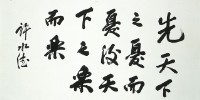 先天下
之憂而
憂後天
下之樂
而樂
許水德